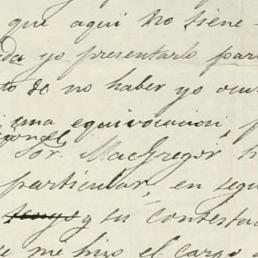 que aqui no tiene
yo presentarlo par
to de no haber yo ocu
una equivocacion, p
Sor. MacGregor h
particular, en segu
tengo y su contesta
me hizo el cargo